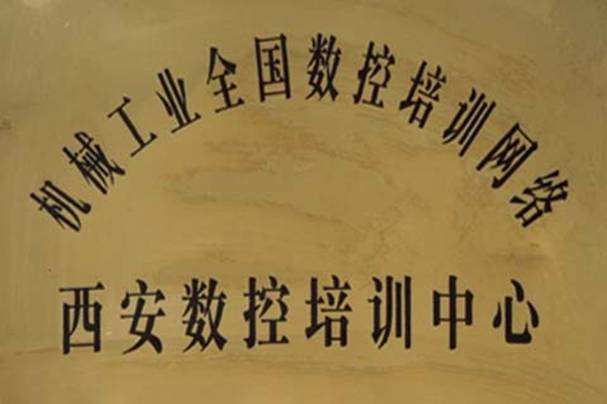 机械工业全国数控培训网络
西安数控培训中心